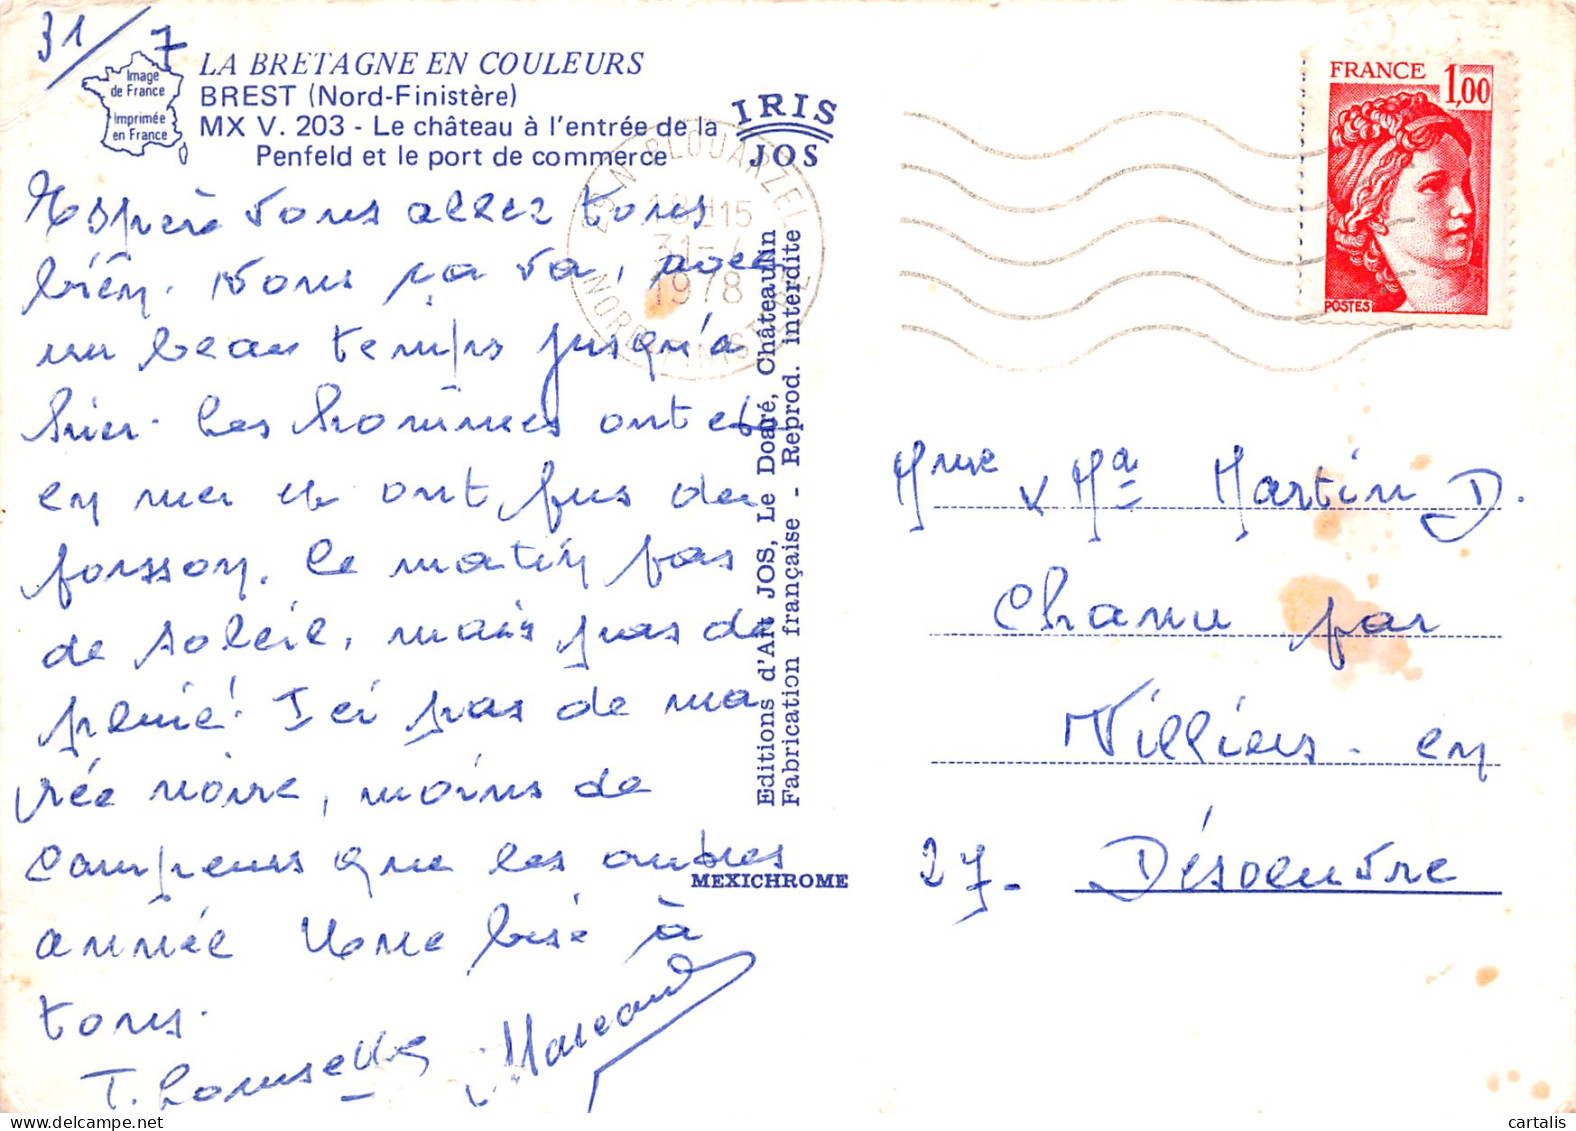 31/7
Image
de France
Imprimée
en France
LA BRETAGNE EN COULEURS
BREST (Nord-Finistère)
MX V. 203 - Le château à l'entrée de la
Penfeld et le port de commerce
IRIS
JOS
29 N PLOUARZEL
15
31-7
1978
NORD FINISTERE
FRANCE 1,00
POSTES
Espère vous allez tous
bien. Nous ça va, avec
un beau temps jusqu'à
hier. Les hommes ont été
en mer et ont pus du
poisson. Ce matin pas
de soleil, mais pas de
pluie! Ici pas de ma
rée noire, moins de
campeurs que les autres
année Une bise à
tous.
T. Marcand
Editions d'Art JOS, Le Doaré, Châteaulin
Fabrication française - Reprod. interdite
MEXICHROME
Mme & Mr Martin D.
Chanu par
Villiers-en
27- Désoeuvre
cartalis